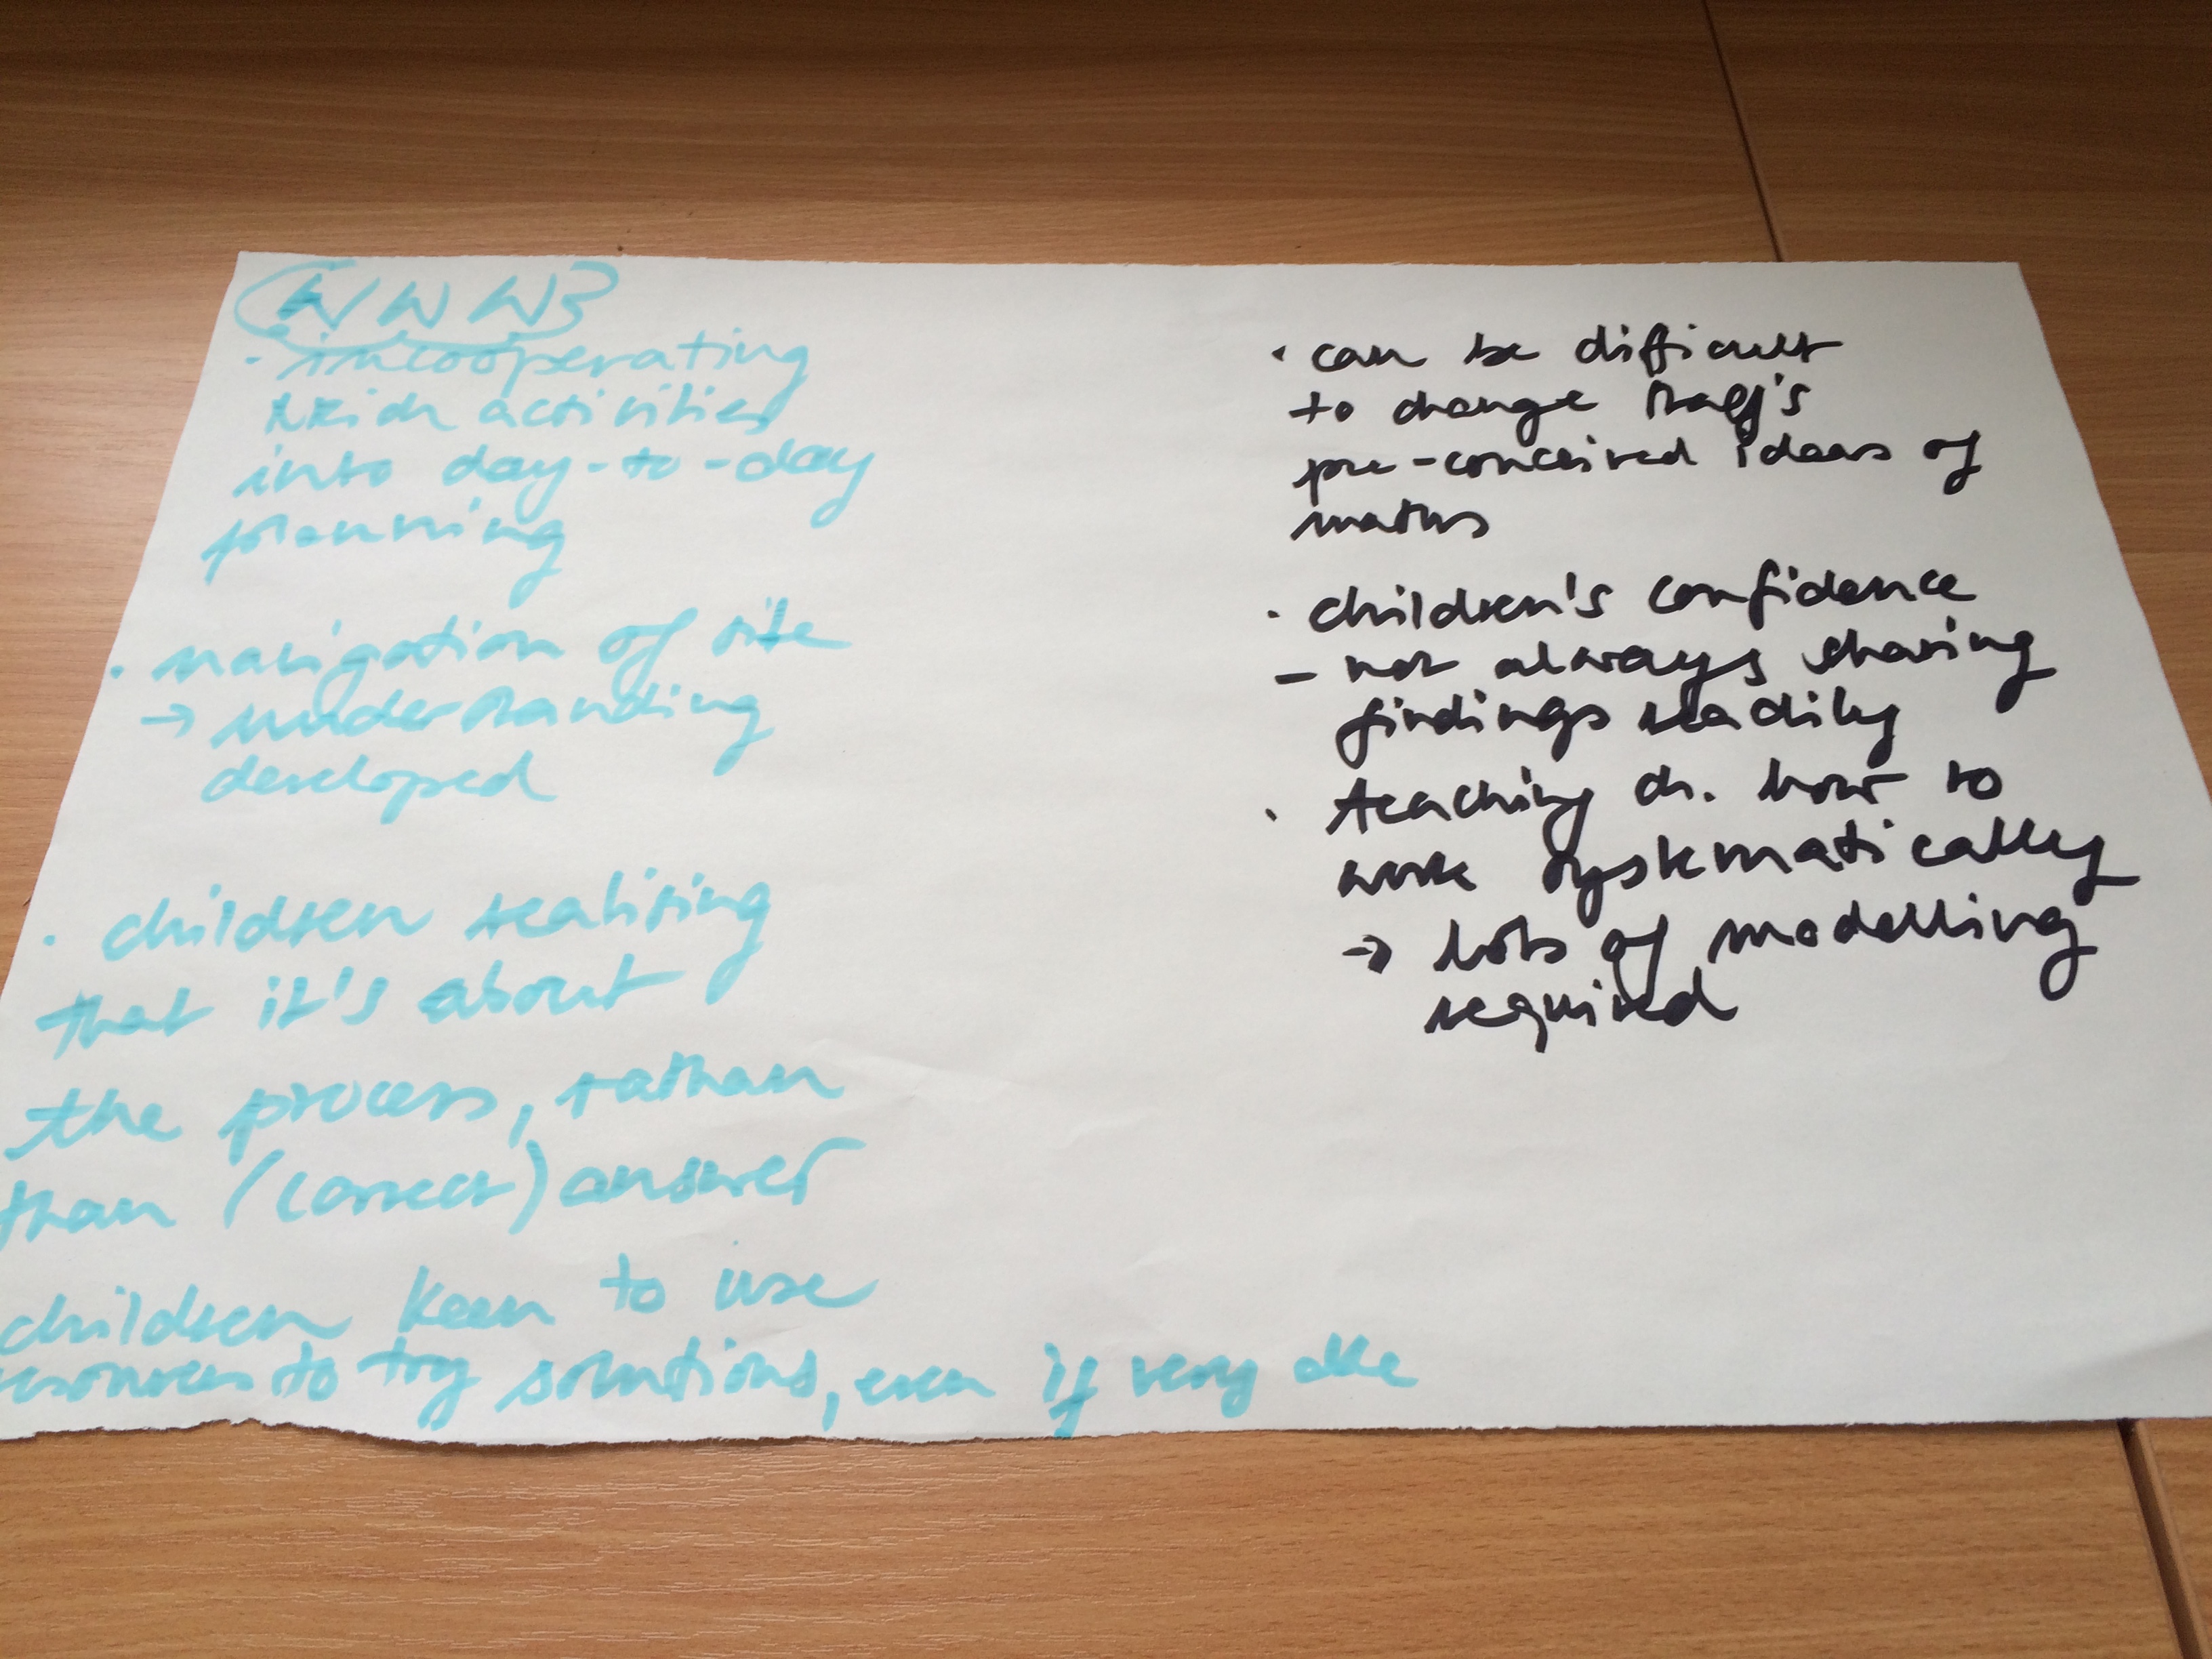 WWW
· incooperating
NRich activities
into day-to-day
planning
· navigation of site
→ understanding
developed
· children realising
that it's about
the process, rathan
than (correct) answer
children keen to use
resources to try solutions, even if very able
· can be difficult
to change staff's
pre-conceived ideas of
maths
· children's confidence
- not always sharing
findings readily
· teaching ch. how to
work systematically
→ lots of modelling
required